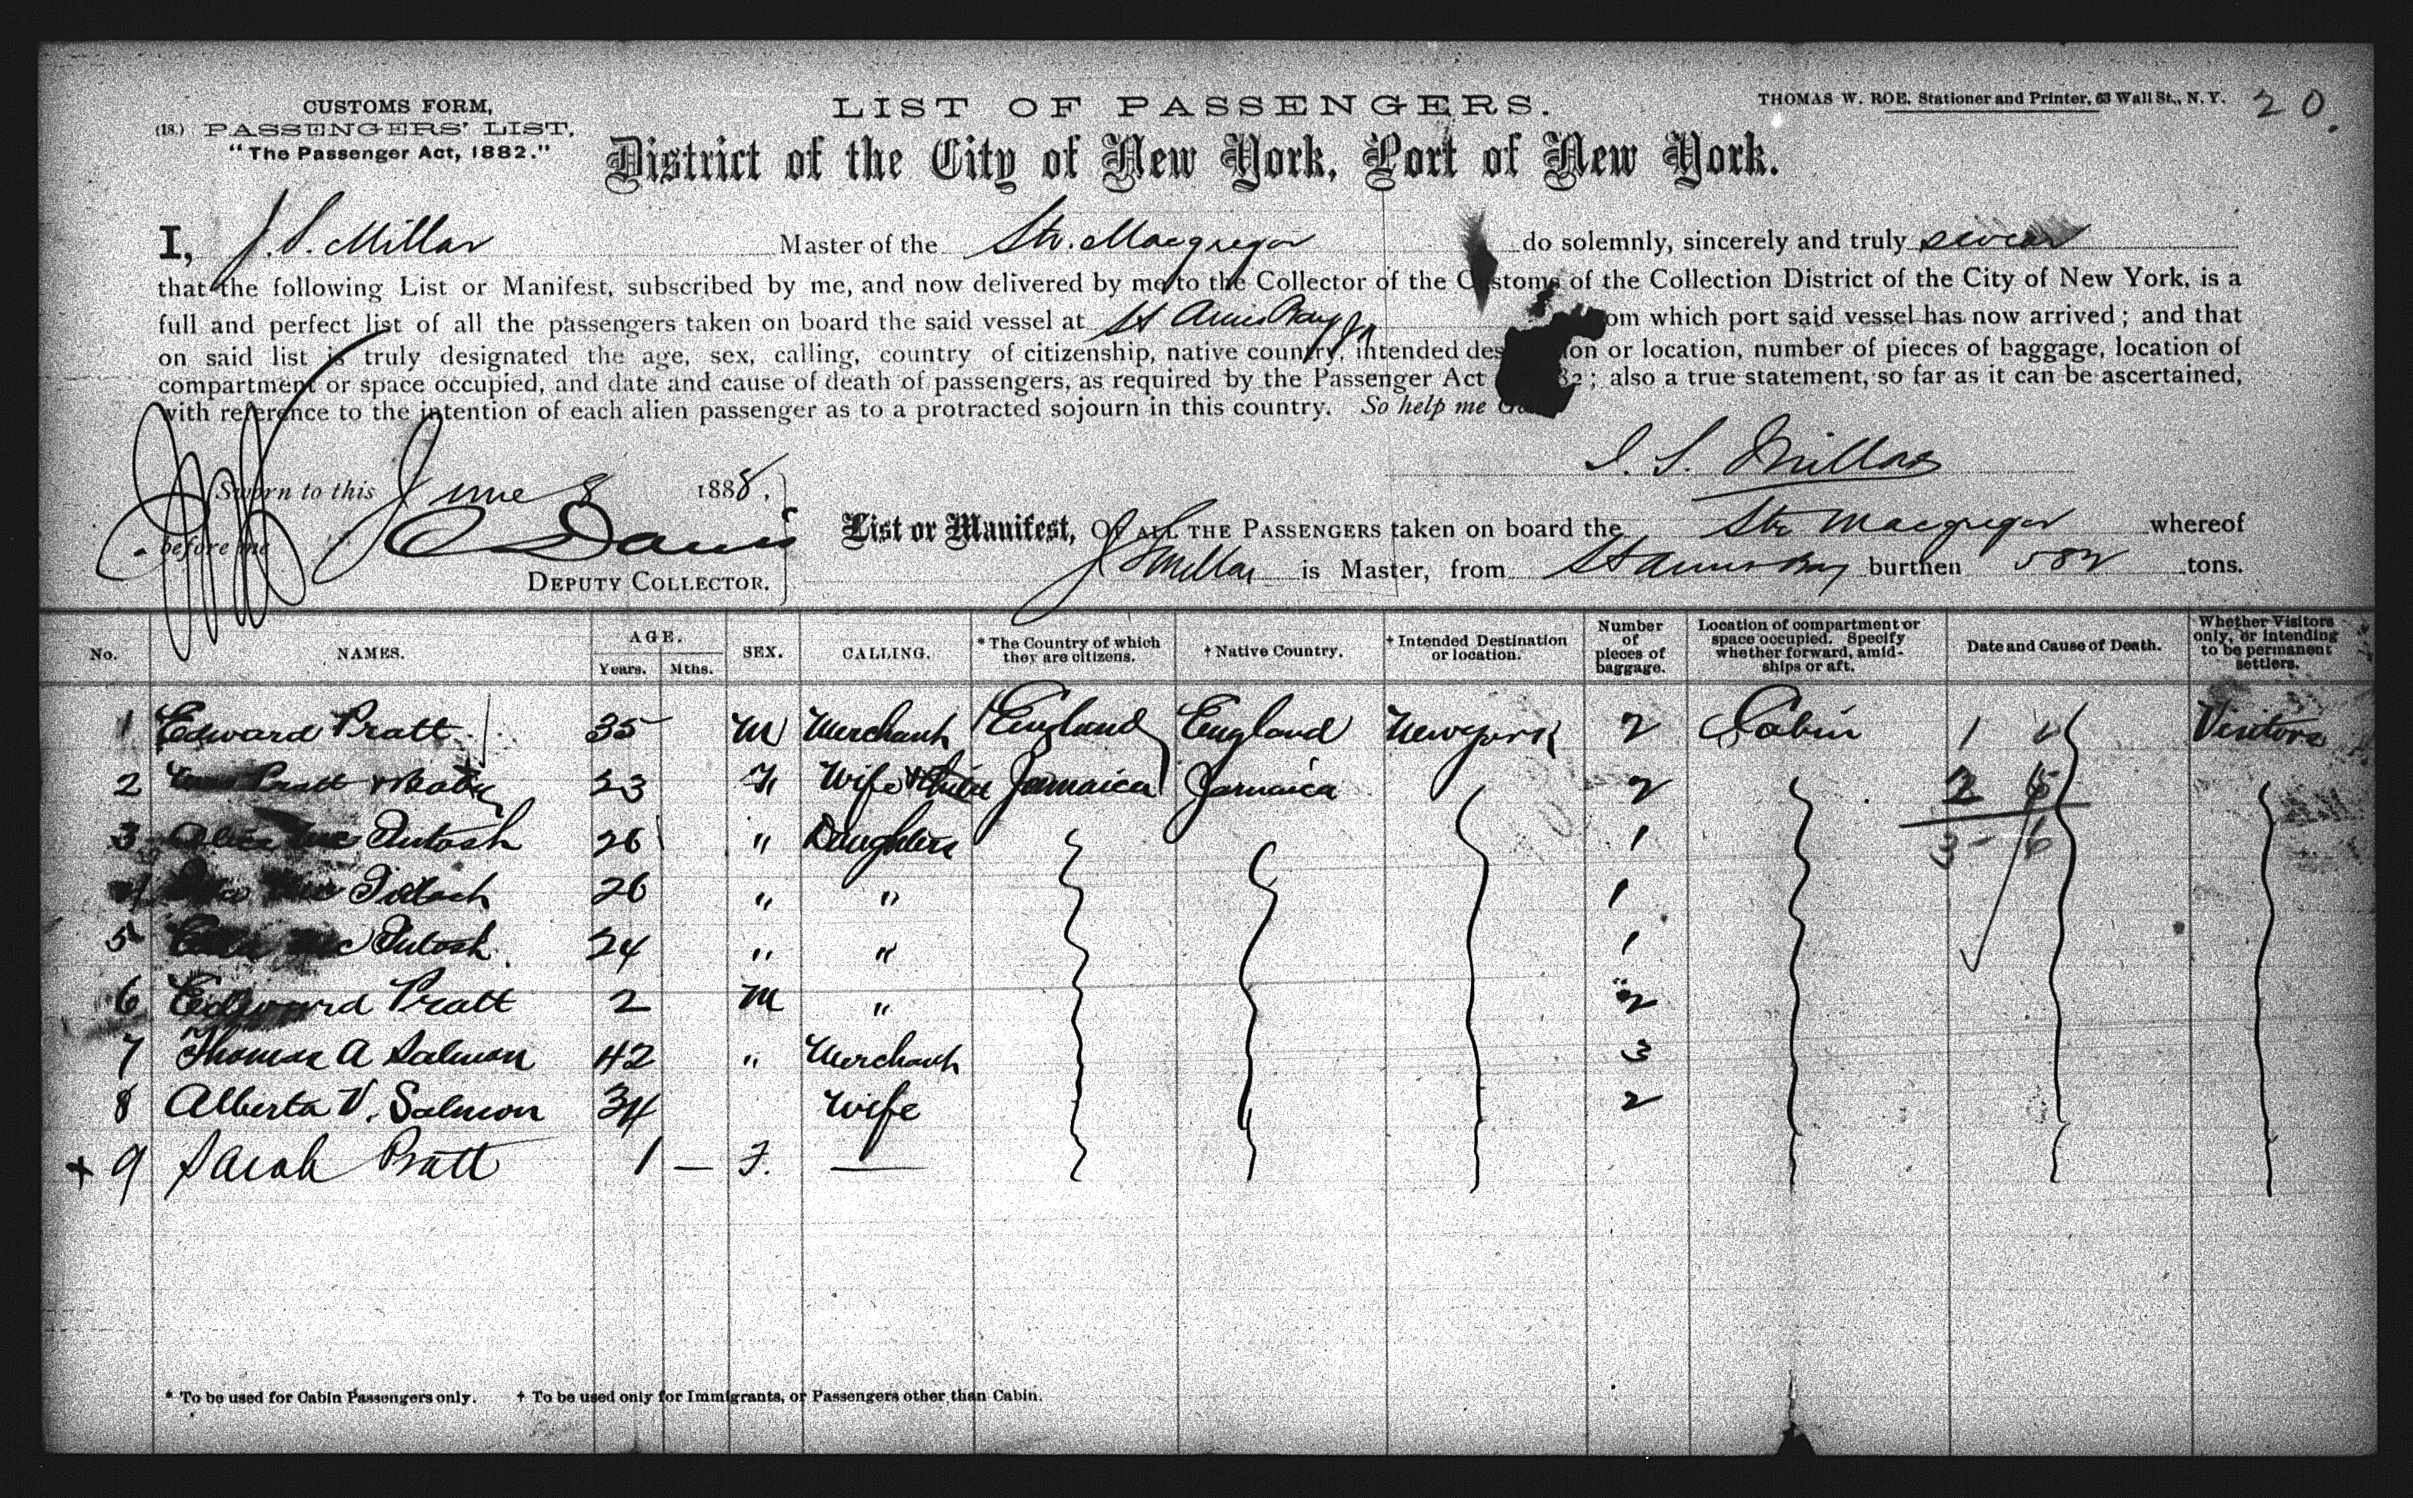 CUSTOMS FORM,
(18.) PASSENGERS' LIST,
"The Passenger Act, 1882."
LIST OF PASSENGERS.
THOMAS W. ROE, Stationer and Printer, 63 Wall St., N. Y.
20.
District of the City of New York, Port of New York.
I, J. S. Millar Master of the Str. Macgregor do solemnly, sincerely and truly swear
that the following List or Manifest, subscribed by me, and now delivered by me to the Collector of the Customs of the Collection District of the City of New York, is a
full and perfect list of all the passengers taken on board the said vessel at St Anns Bay Ja om which port said vessel has now arrived; and that
on said list is truly designated the age, sex, calling, country of citizenship, native country, intended des ion or location, number of pieces of baggage, location of
compartment or space occupied, and date and cause of death of passengers, as required by the Passenger Act 82; also a true statement, so far as it can be ascertained,
with reference to the intention of each alien passenger as to a protracted sojourn in this country. So help me
J. S. Millar
Sworn to this June 8 1888.
before me C Davis
DEPUTY COLLECTOR.
List or Manifest, OF ALL THE PASSENGERS taken on board the Str Macgregor whereof
J S Millar is Master, from St Anns Bay burthen 582 tons.
No. NAMES. AGE. Years. Mths. SEX. CALLING. * The Country of which they are citizens. † Native Country. † Intended Destination or location. Number of pieces of baggage. Location of compartment or space occupied. Specify whether forward, amidships or aft. Date and Cause of Death. Whether Visitors only, or intending to be permanent settlers.
1 Edward Pratt 35 M Merchant England England New York 2 Cabin Visitors
2 Pratt & Baby 23 F Wife & Child Jamaica Jamaica 2
3 Intosh 26 " Daughters 1
26 " " 1
5 Mc Intosh 24 " " 1
6 Edward Pratt 2 M " 2
7 Thomas A Salmon 42 " Merchant 3
8 Alberta V. Salmon 34 Wife 2
+ 9 Sarah Pratt 1 — F. —
* To be used for Cabin Passengers only. † To be used only for Immigrants, or Passengers other than Cabin.